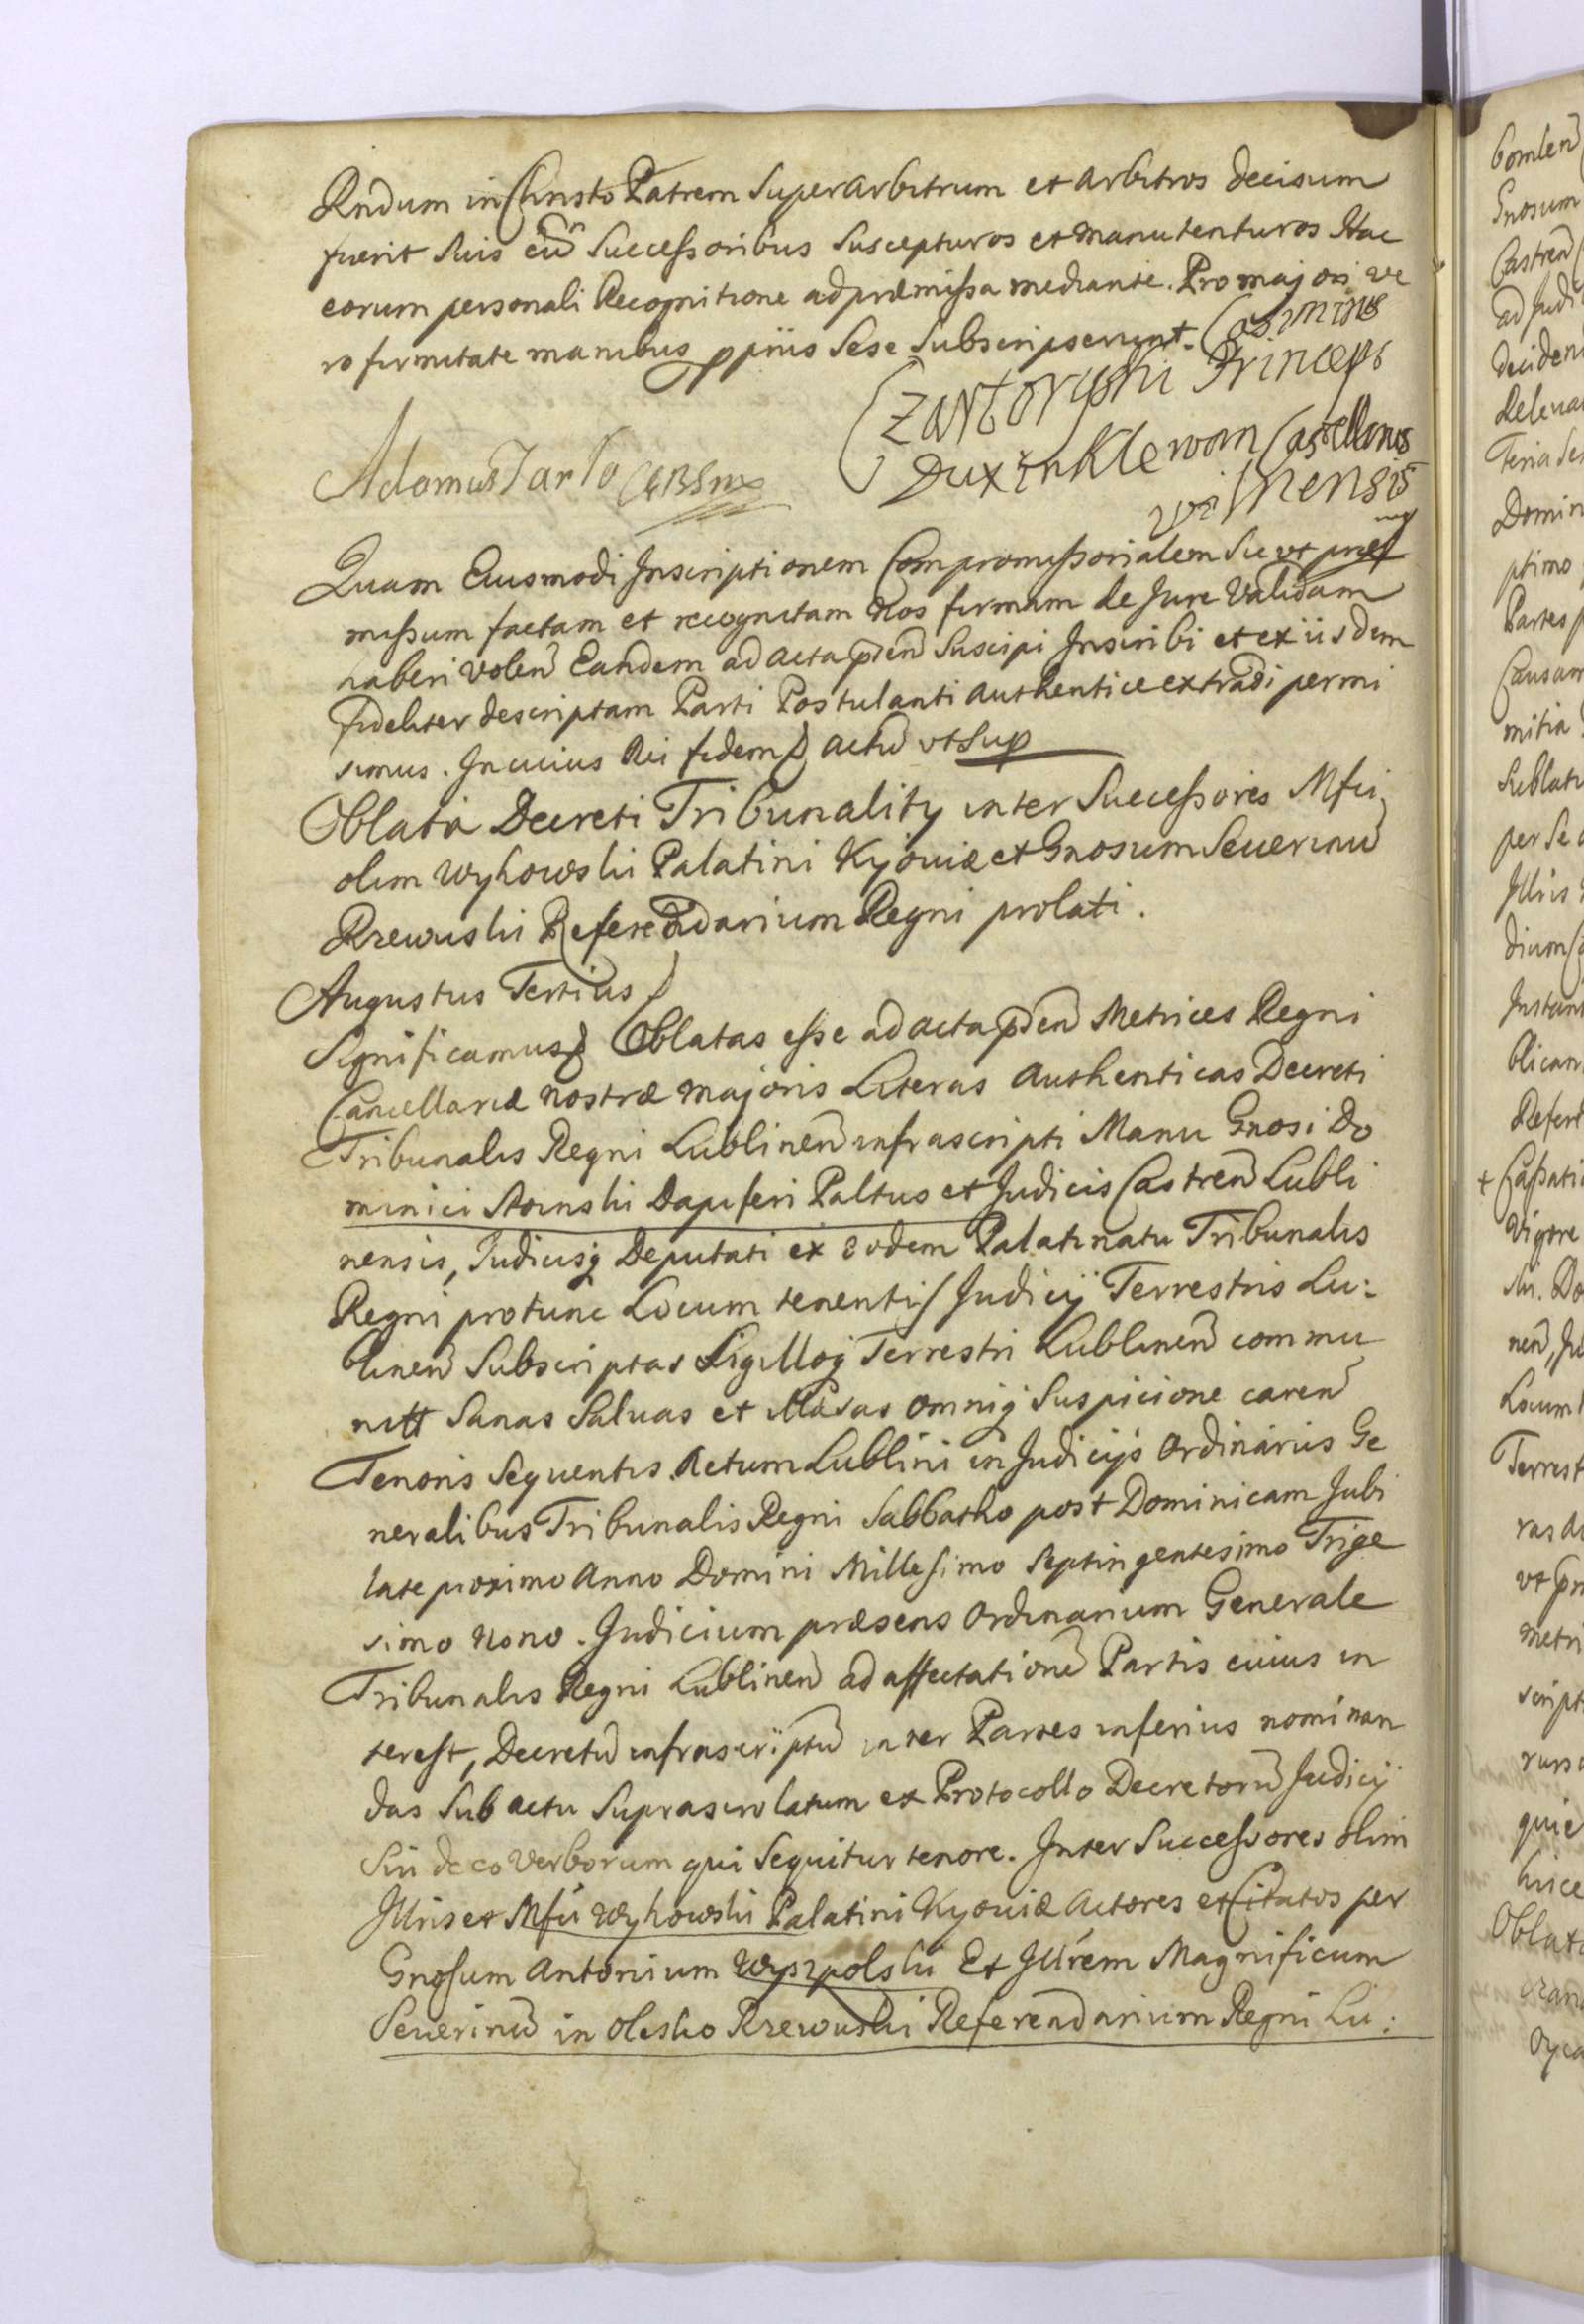 Rndum in Christo Patrem Superarbitrum et Arbitros decisum
fuerit Suis cũ Successoribus Suscepturos et manutenturos Hac
eorum personali Recognitione ad præmissa mediante. Pro majori ve
ro firmitate manibus ppriis Sese Subscripserunt. Casimirus
Czartoryski Princeps
Dux in Klewan Castellanus
vilnensis
Adamus Tarło
Quam Eiusmodi Inscriptionem Compromissorialem Sic ut præ
missum factam et recognitam Nos firmam de Jure Validam
haberi volen Eandem ad acta pñen Suscipi Inscribi et ex iisdem
fideliter descriptam Parti Postulanti authentice extradi permi
simus. In cuius Rei fidem actũ ut Sup
Oblata Decreti Tribunality inter Successores Mfci
olim Wyhowski Palatini Kyoviæ et Gnosum Severinũ
Rzewuski Referendarium Regni prolati.
Augustus Tertius
Significamus Oblatas esse ad acta pñen Metrices Regni
Cancellariæ nostræ majoris Literas Authenticas Decreti
Tribunalis Regni Lublinen infrascripti Manu Gnosi Do
minici Stoinski Dapiferi Paltus et Judicis Castren Lubli
nensis, Judicisq Deputati ex eodem Palatinatu Tribunalis
Regni protunc Locum tenentis Judicij Terrestris Lu:
blinen Subscriptas Sigilloq Terrestri Lublinen commu
nitt Sanas Salvas et Illæsas omniq Suspicione caren
Tenoris Sequentis. Actum Lublini in Judicijs Ordinariis Ge
neralibus Tribunalis Regni Sabbatho post Dominicam Jubi
late proximo Anno Domini Millesimo Septingentesimo Trige
simo Nono. Judicium præsens Ordinarium Generale
Tribunalis Regni Lublinen ad affectationẽ Partis cuius in
terest, Decretũ infrascriptũ inter Partes inferius nominan
das Sub actu Suprascro latum ex Protocollo Decretorũ Judicij
Sui de eo verborum qui Sequitur tenore. Inter Successores olim
Illris et Mfci Wyhowski Palatini Kyoviæ Actores et Citatos per
Gnosum Antonium Wyszpolski Et Illrem Magnificum
Severinũ in Olesko Rzewuski Referendarium Regni Lu: